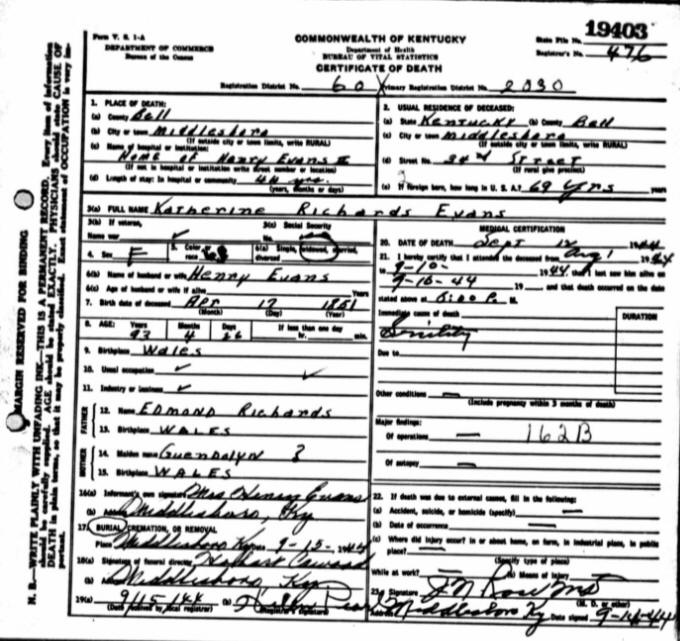 19403
Form V. S. 1-A
DEPARTMENT OF COMMERCE
Bureau of the Census
COMMONWEALTH OF KENTUCKY
Department of Health
BUREAU OF VITAL STATISTICS
CERTIFICATE OF DEATH
State File No.
Registrar's No. 476
Registration District No. 60 Primary Registration District No. 2030
MARGIN RESERVED FOR BINDING
N. B.—WRITE PLAINLY WITH UNFADING INK—THIS IS A PERMANENT RECORD. Every item of information
should be carefully supplied. AGE should be stated EXACTLY. PHYSICIANS should state CAUSE OF
DEATH in plain terms, so that it may be properly classified. Exact statement of OCCUPATION is very im-
portant.
1. PLACE OF DEATH:
(a) County Bell
(b) City or town Middlesboro
(If outside city or town limits, write RURAL)
(c) Name of hospital or institution:
Home of Henry Evans II
(If not in hospital or institution write street number or location)
(d) Length of stay: In hospital or community 44 yrs.
(years, months or days)
2. USUAL RESIDENCE OF DECEASED:
(a) State Kentucky (b) County Bell
(c) City or town Middlesboro
(If outside city or town limits, write RURAL)
(d) Street No. 34th Street
(If rural give precinct)
(e) If foreign born, how long in U. S. A.? 69 Yrs years
3(a) FULL NAME Katherine Richards Evans
3(b) If veteran,
Name war
3(c) Social Security
No.
4. Sex F
5. Color
race
6(a) Single, widowed, married,
divorced
6(b) Name of husband or wife Henry Evans
6(c) Age of husband or wife if alive Years
7. Birth date of deceased Apr 17 1851
(Month) (Day) (Year)
8. AGE: Years Months Days If less than one day
93 4 26 hr. min.
9. Birthplace Wales
10. Usual occupation
11. Industry or business
FATHER
12. Name Edmond Richards
13. Birthplace WALES
MOTHER
14. Maiden name Guendolyn ?
15. Birthplace WALES
16(a) Informant's own signature Mrs Henry Evans
(b) Address Middlesboro, Ky
17. BURIAL, CREMATION, OR REMOVAL
Place Middlesboro Ky Date 9-15-1944
18(a) Signature of funeral director
(b) Address Middlesboro Ky
19(a) 9/15/44 (b)
(Date received by local registrar) (Registrar's signature)
MEDICAL CERTIFICATION
20. DATE OF DEATH Sept 12 1944
21. I hereby certify that I attended the deceased from Aug 1 1944
9-10- 1944, that I last saw him alive on
9-10-44 19 and that death occurred on the date
stated above at 6:00 P. M.
Immediate cause of death
Senility
DURATION
Due to
Other conditions
(Include pregnancy within 3 months of death)
Major findings:
Of operations 162B
Of autopsy
22. If death was due to external causes, fill in the following:
(a) Accident, suicide, or homicide (specify)
(b) Date of occurrence
(c) Where did injury occur? in or about home, on farm, in industrial place, in public
place?
(Specify type of place)
While at work? (b) Means of injury
23. Signature
(M. D. or other)
Address Middlesboro Ky Date signed 9-14-44